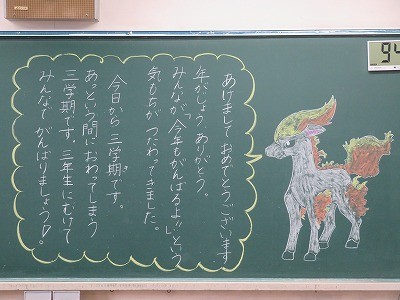 あけましておめでとうございます
年がじょう ありがとう。
みんなが「今年もがんばるよ!!」という
気もちが つたわってきました。
今日から 三学期です。
き
あっという間におわってしまう
三学期です。三年生にむけて
みんなで がんばりましょう!
94